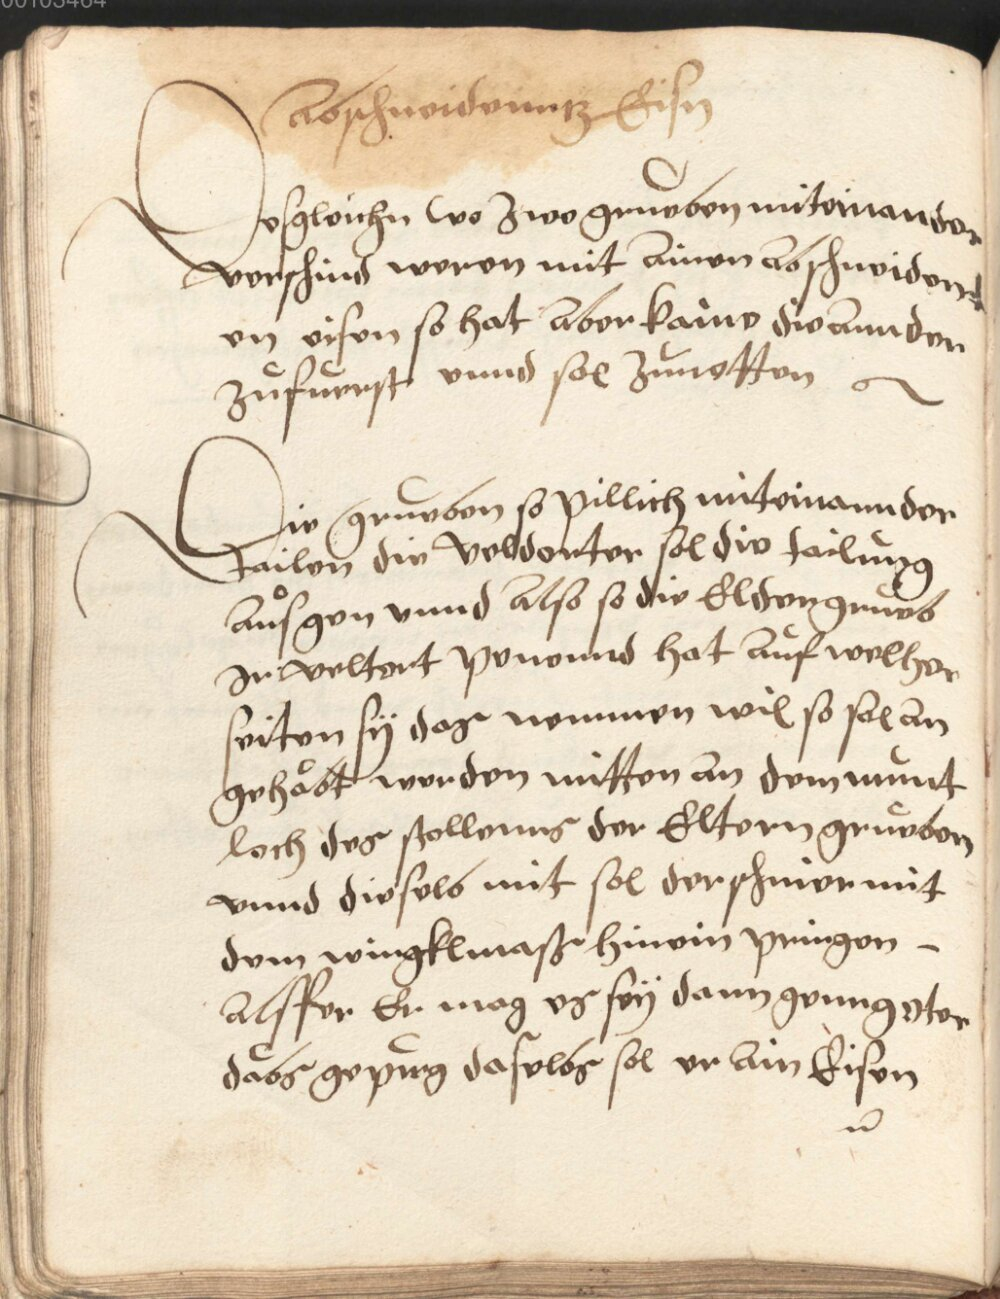 00103464
abschneidenntz Eisn
Desgleichn wo zwo grueben miteinannder
verschind weren mit ainen abschneident
en eisen so hat aber kaine die annder
zufuerst unnd sol zunetten
Die grueben so pillich miteinannder
tailen die veldörter sol die tailung
ausgen unnd also so die Elder grueb
Ir veltort penennd hat auf welher
seiten sy das nemmen wil so sol an
gehabt werden mitten an dem munt
loch des stollenns der Eltern grueben
unnd dieselb mit sol der schiner mit
dem wingklmass hinein pringen
Alsfer Er mag es sey dann genng oder
dabs gepurg daselbs sol er ain Eisen